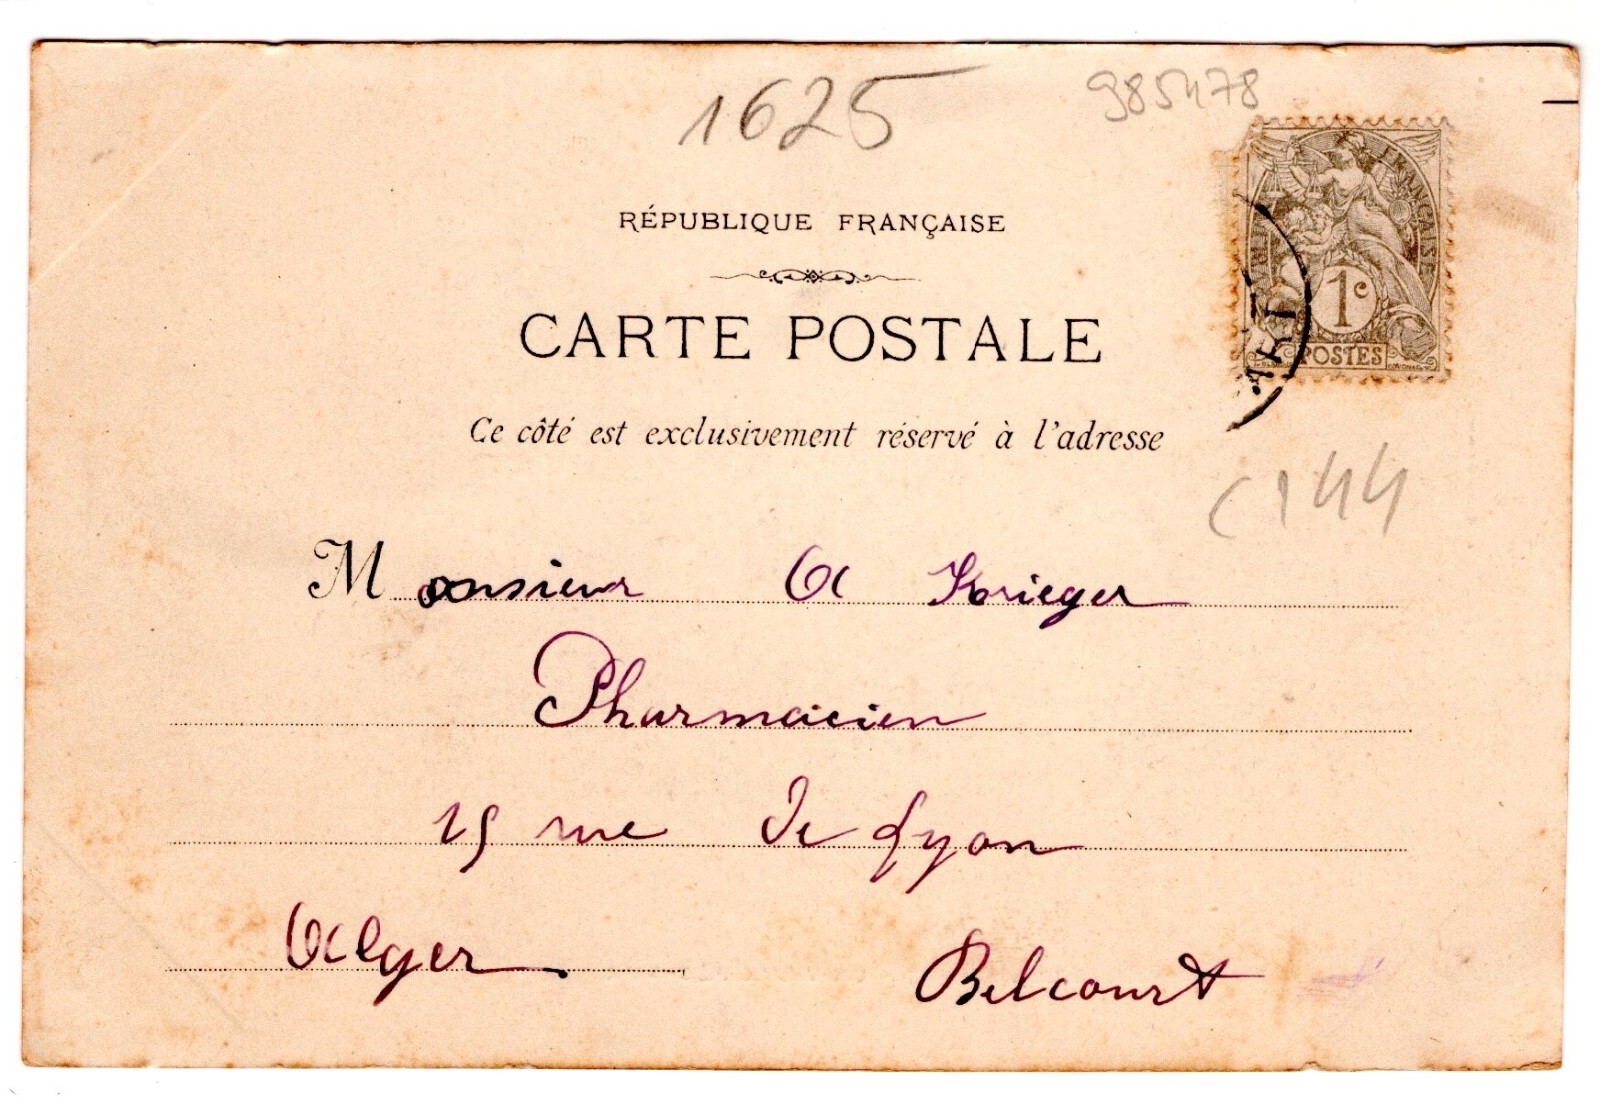 1625
985478
RÉPUBLIQUE FRANÇAISE
CARTE POSTALE
Ce côté est exclusivement réservé à l'adresse
1c
POSTES
C144
Monsieur A Krieger
Pharmacien
15 rue de Lyon
Alger Belcourt